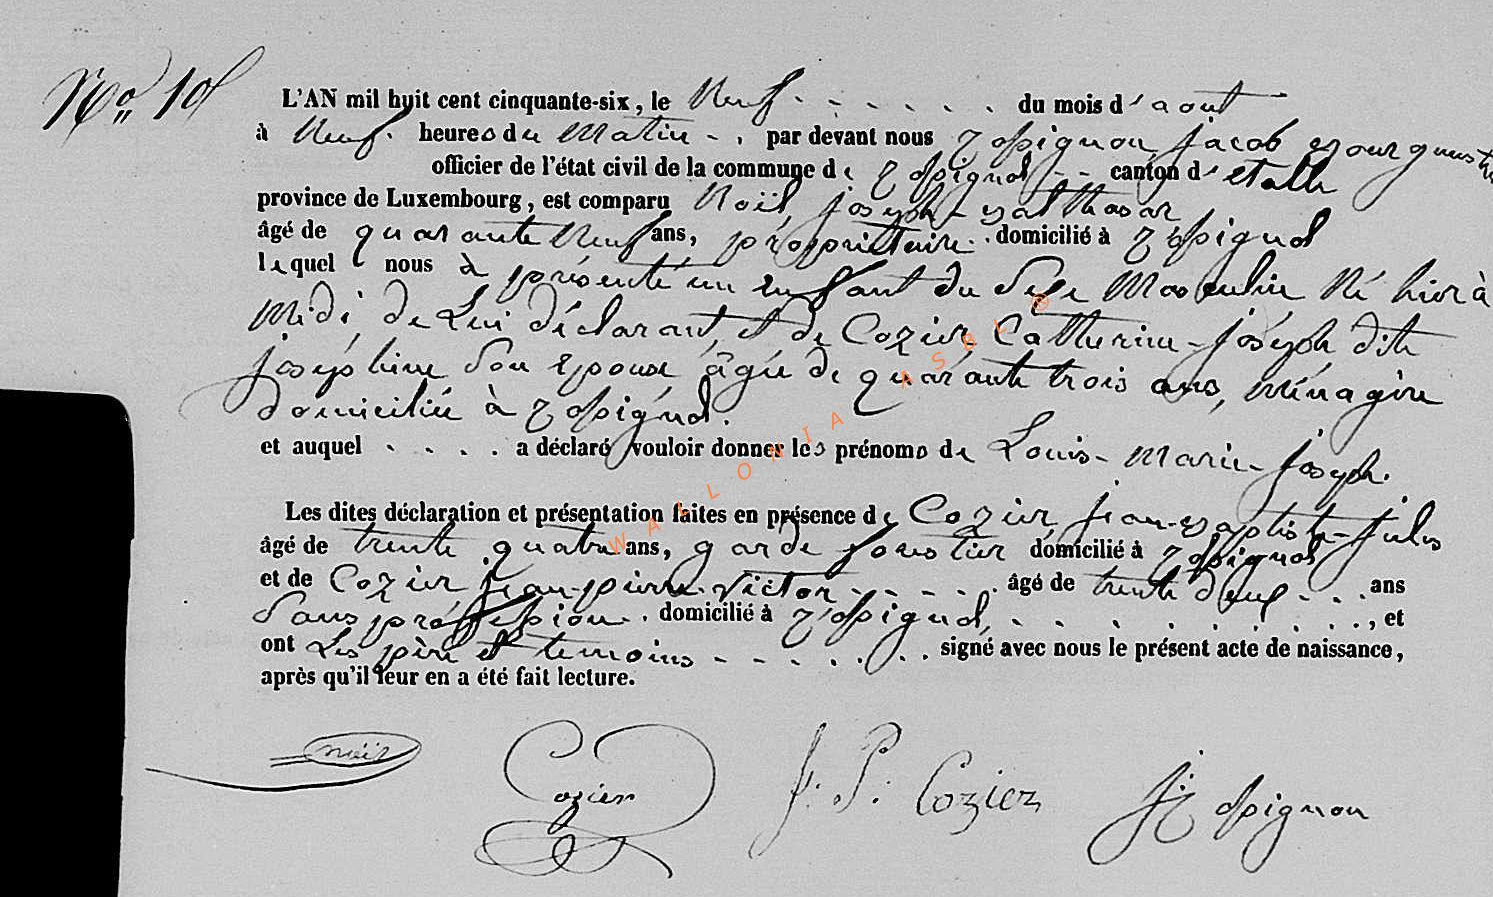 No 10
L'AN mil huit cent cinquante-six, le Neuf du mois d'aout
à Neuf heures du Matin, par devant nous Rossignon Jacob Bourguemestre
officier de l'état civil de la commune de Rossignol canton d'etalle
province de Luxembourg, est comparu Noël, joseph-Balthasar
âgé de quarante Neuf ans, propriétaire domicilié à Rossignol
lequel nous à présenté un Enfant du Sexe Masculin Né hier à
Midi, de Lui déclarant, et de Cozier Catherine-joseph dite
joséphine Son Epouse, âgée de quarante trois ans, ménagère
domiciliée à Rossignol.
et auquel a déclaré vouloir donner les prénoms de Louis-Marie-joseph.
Les dites déclaration et présentation faites en présence de Cozier jean-Baptiste-jules
âgé de trente quatre ans, garde forestier domicilié à Rossignol
et de Cozier jean-pierre-victor âgé de trente deux ans
Sans proffession domicilié à Rossignol, et
ont Les père et temoins signé avec nous le présent acte de naissance,
après qu'il leur en a été fait lecture.
noël Cozier J. P. Cozier J. Rossignon
WALLONIA ASBL ©